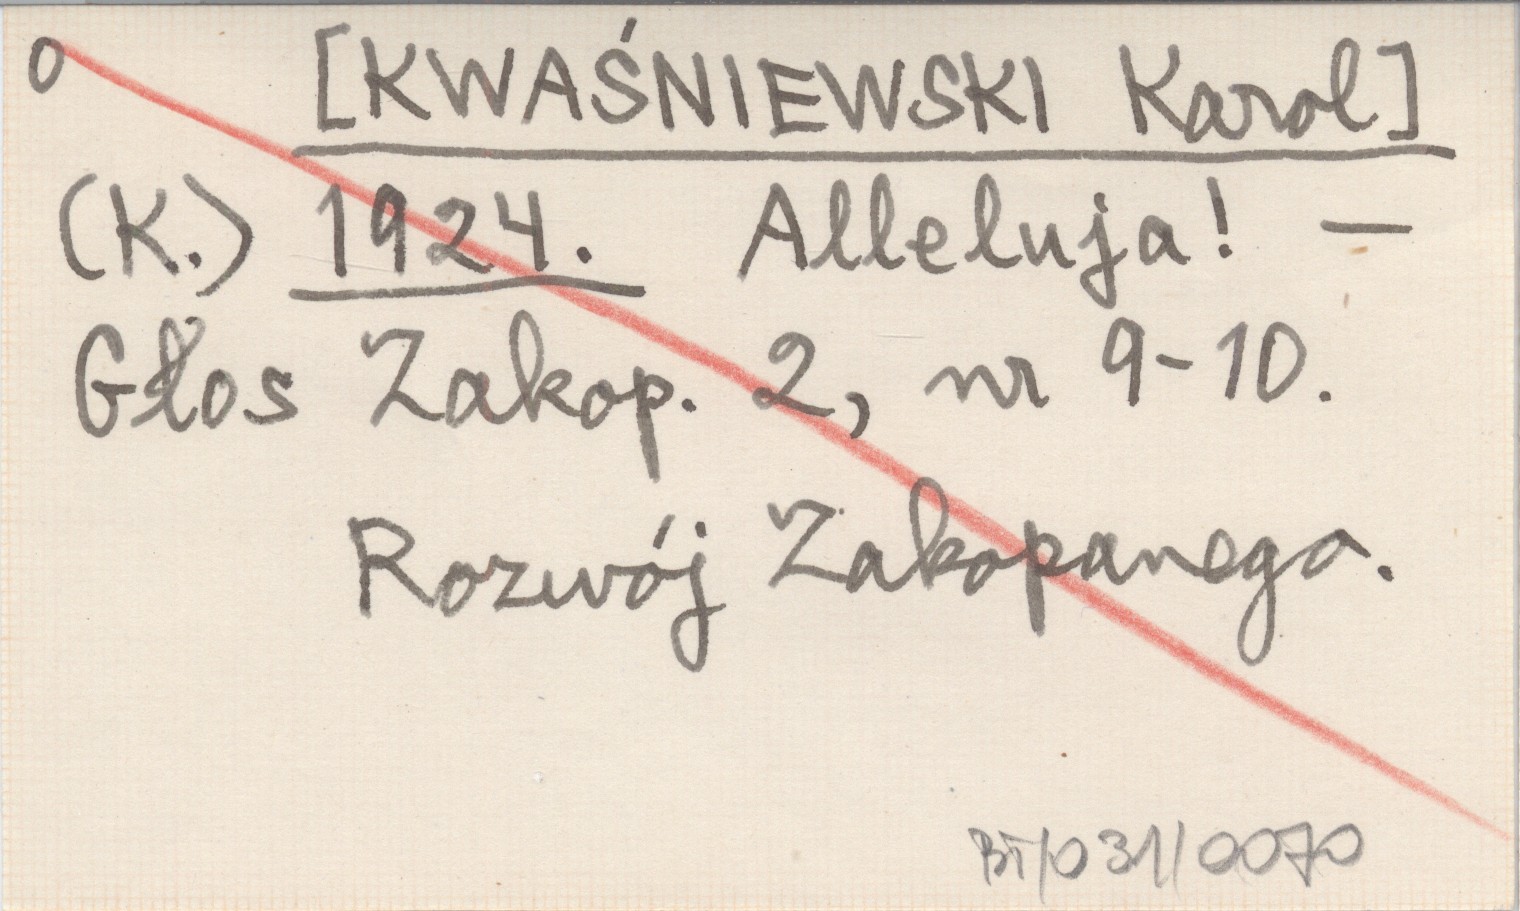 o [KWAŚNIEWSKI Karol]
(K.) 1924. Alleluja! —
Głos Zakop. 2, nr 9-10.
Rozwój Zakopanego.
BT/031/0070